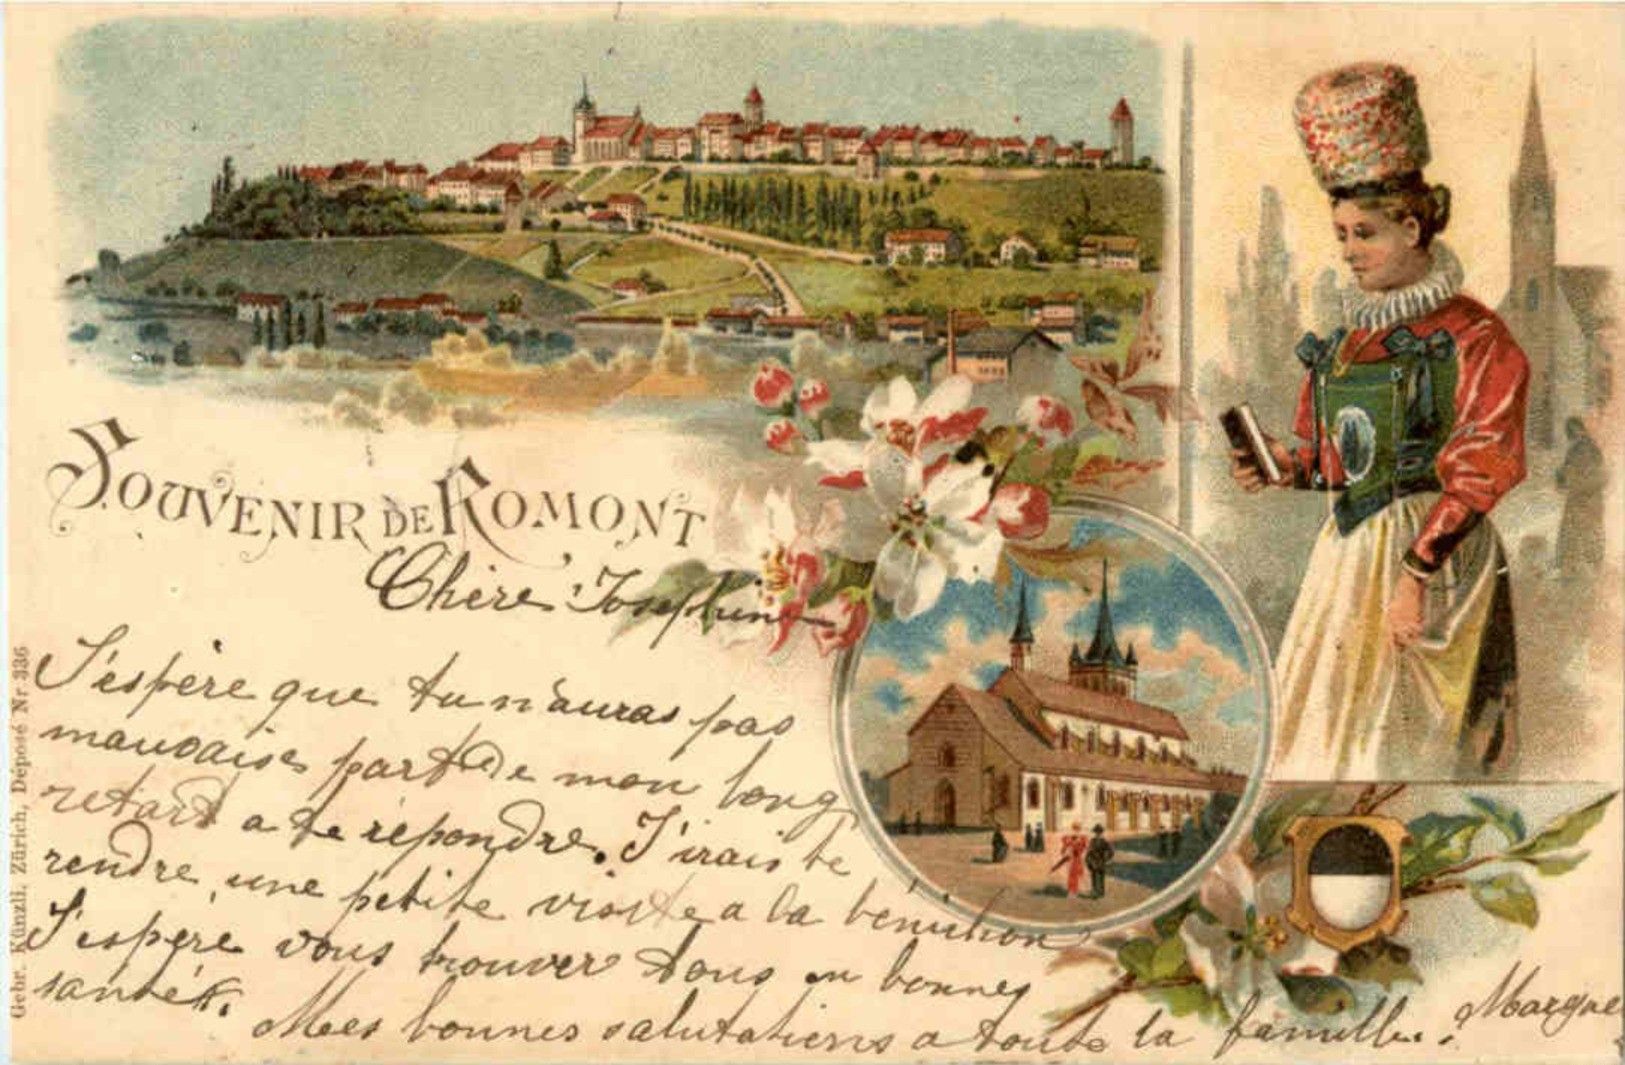 SOUVENIR DE ROMONT
Chère Josephine
J'espère que tu n'auras pas
mauvaise part de mon long
retard a te répondre. J'irais te
rendre une petite visite a la bénichon
J'espère vous trouver tous en bonnes
santés.
Mes bonnes salutations a toute la famille.
Gebr. Künzli, Zürich, Déposé Nr 336